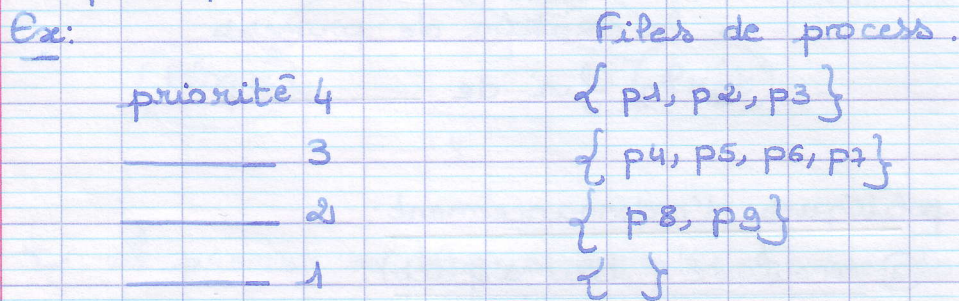 Ex: Files de process.
priorité 4 { p1, p2, p3 }
_______ 3 { p4, p5, p6, p7 }
_______ 2 { p8, p9 }
_______ 1 { }